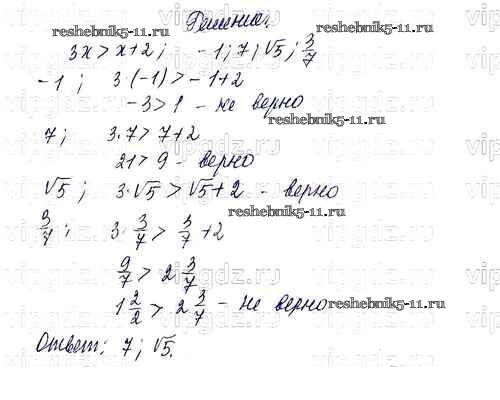 Решение.
reshebnik5-11.ru
3x > x+2; -1; 7; √5; 3/7
-1; 3·(-1) > -1+2
-3 > 1 - не верно
reshebnik5-11.ru
7; 3·7 > 7+2
21 > 9 - верно
√5; 3·√5 > √5+2 - верно
reshebnik5-11.ru
3/7; 3·3/7 > 3/7+2
9/7 > 2 3/7
1 2/2 > 2 3/7 - не верно
reshebnik5-11.ru
Ответ: 7; √5.